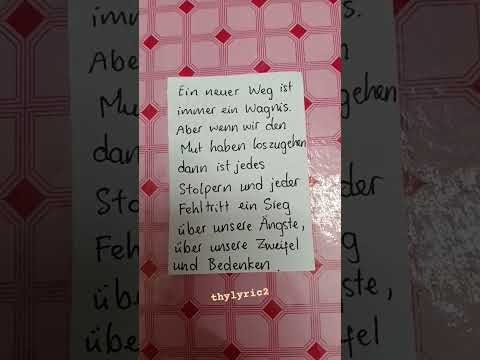 Ein neuer Weg ist
immer ein Wagnis.
Aber wenn wir den
Mut haben loszugehen
dann ist jedes
Stolpern und jeder
Fehltritt ein Sieg
über unsere Ängste,
über unsere Zweifel
und Bedenken.
thylyric2